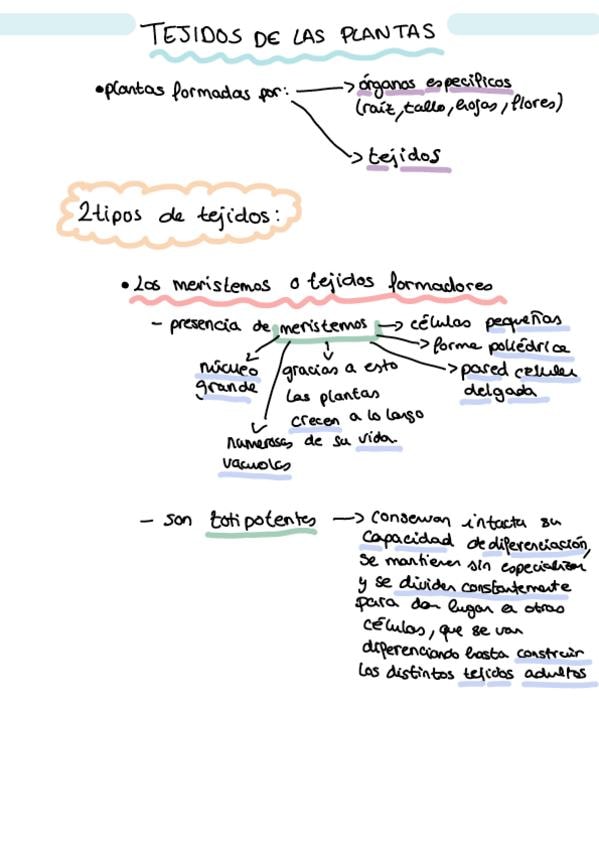 TEJIDOS DE LAS PLANTAS
•plantas formadas por: → órganos específicos
(raíz, tallo, hojas, flores)
→ tejidos
2 tipos de tejidos:
• Los meristemos o tejidos formadores
- presencia de meristemos → células pequeñas
→ forma poliédrica
→ pared celular
delgada
núcleo
grande
gracias a esto
las plantas
crecen a lo largo
de su vida
numerosas
vacuolas
- son totipotentes → conservan intacta su
capacidad de diferenciación,
se mantienen sin especializar
y se dividen constantemente
para dar lugar a otras
células, que se van
diferenciando hasta construir
los distintos tejidos adultos